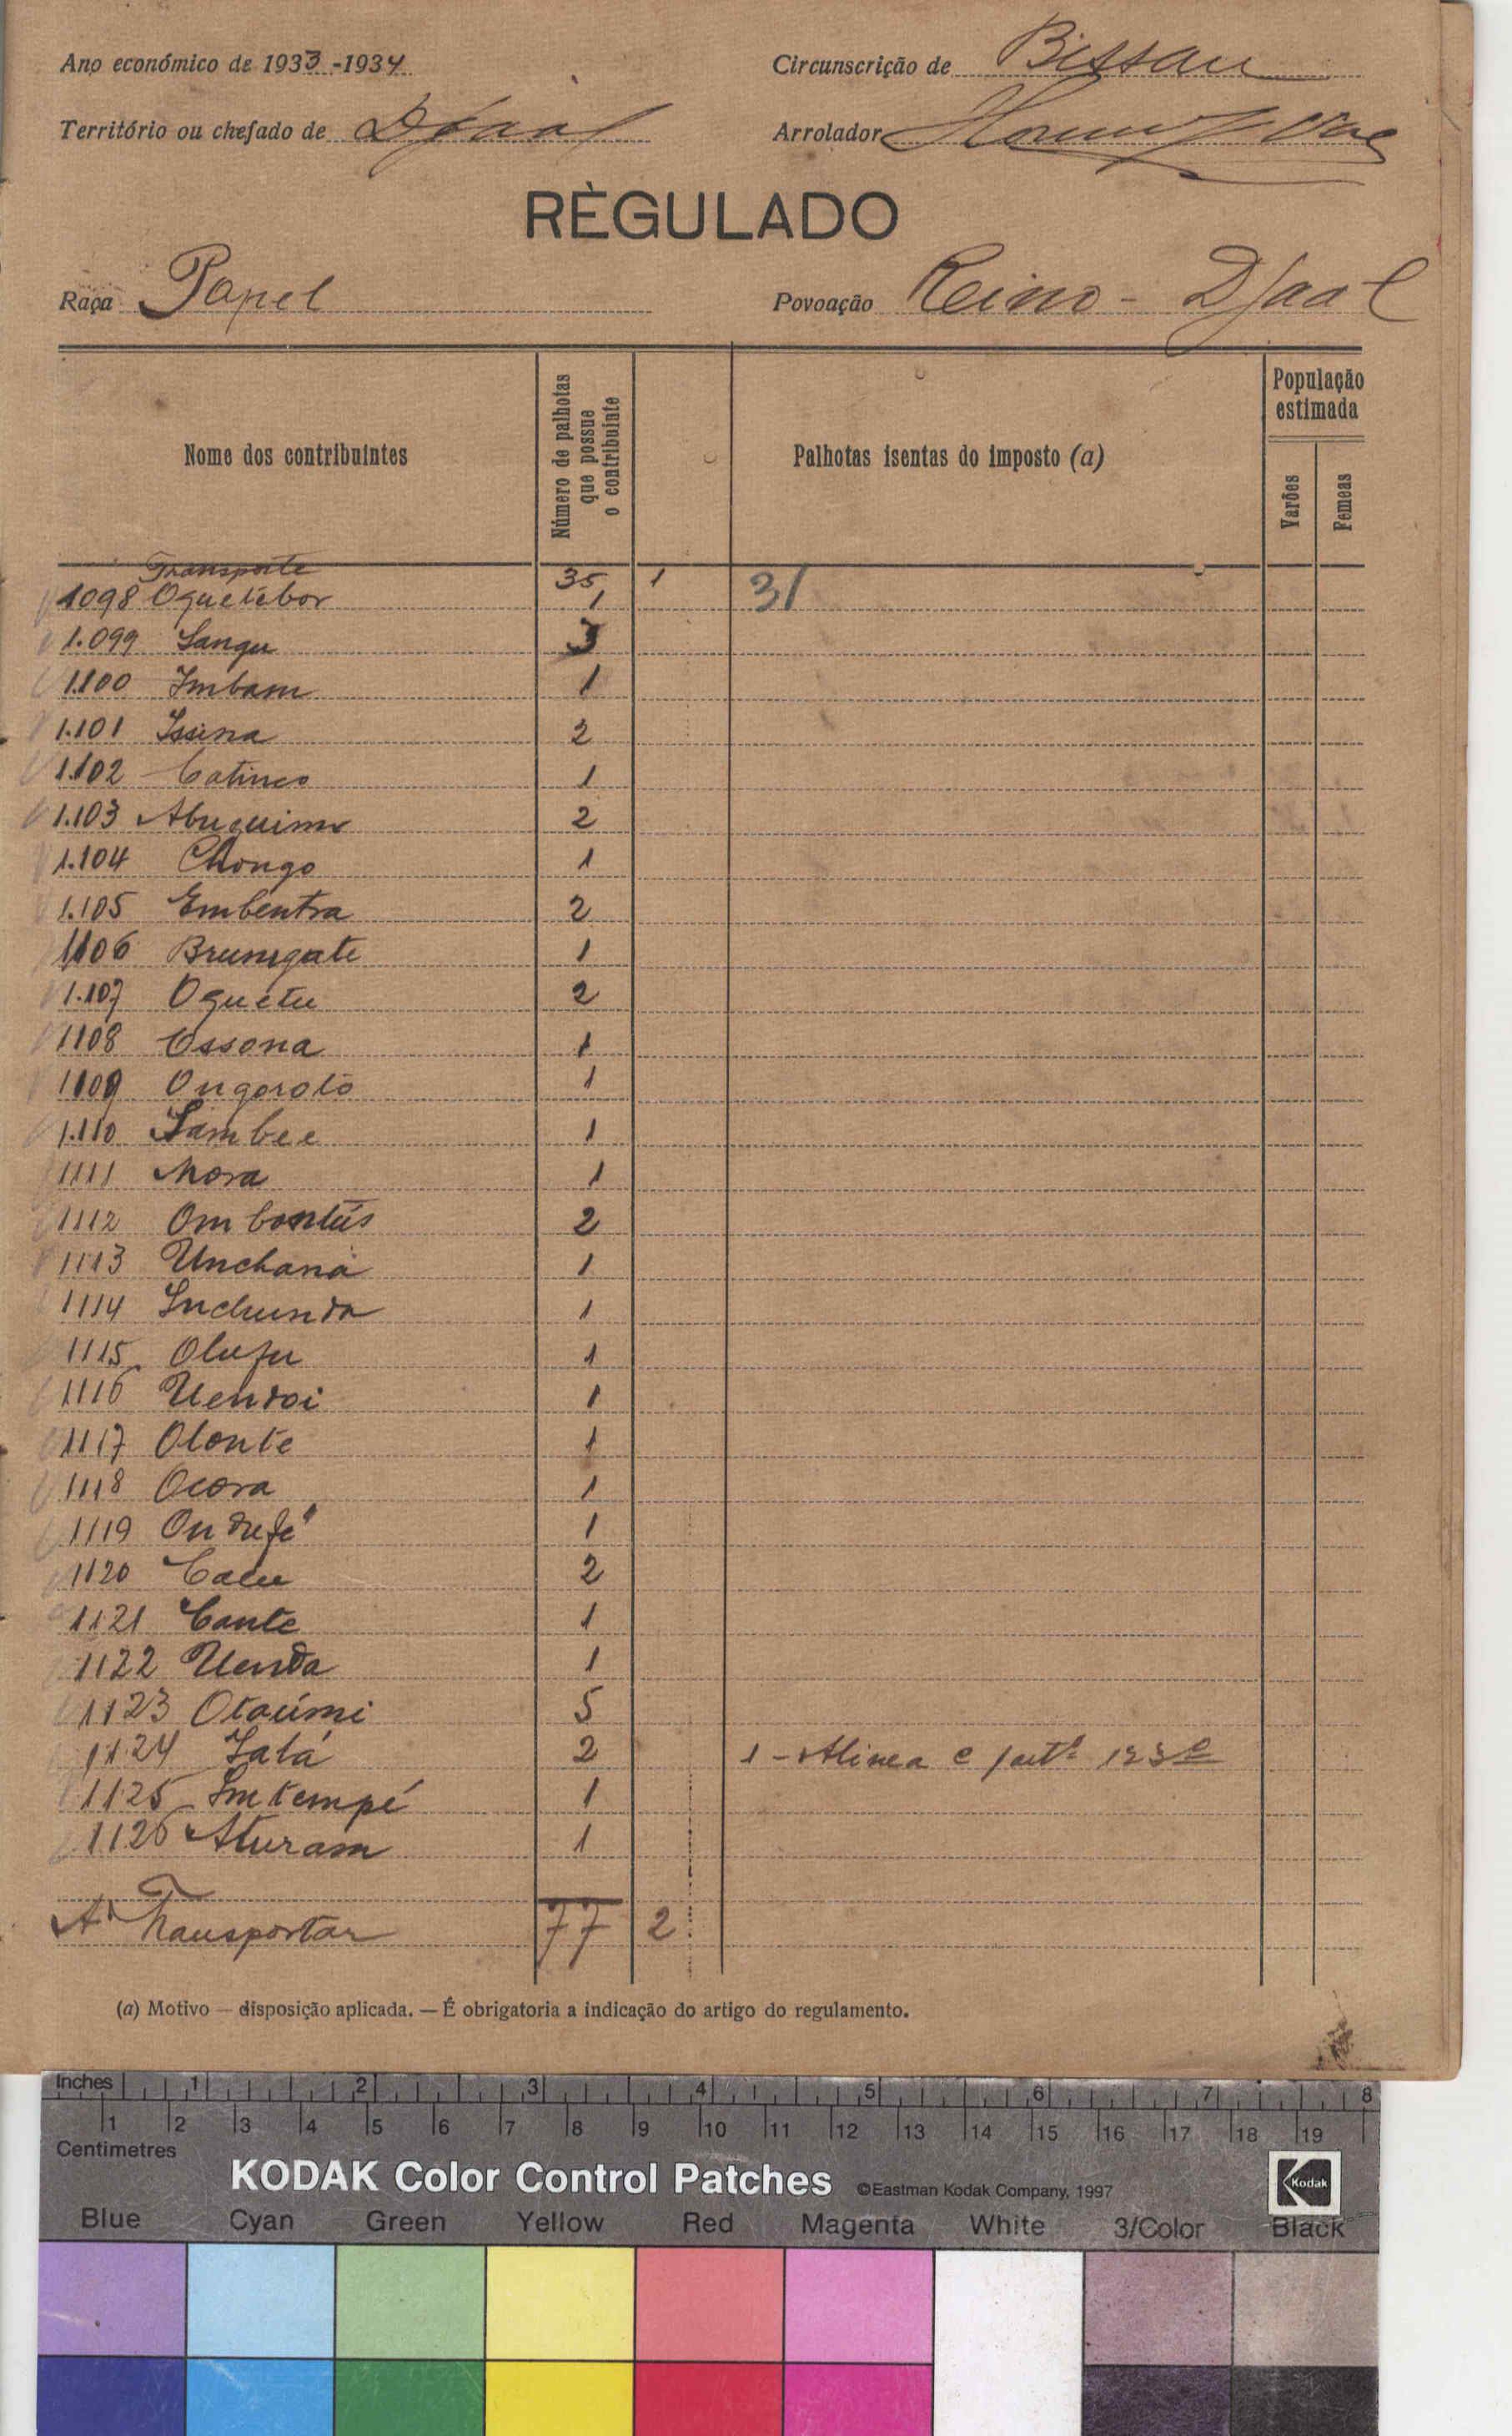 Ano económico de 1933-1934 Circunscrição de Bissau
Território ou chefado de Djaal Arrolador
RÈGULADO
Raça Papel Povoação Reino - Djaal
Nome dos contribuintes
Número de palhotas que possue o contribuinte
Palhotas isentas do imposto (a)
População estimada
Varões
Femeas
Transporte 35 1
1098 Oguetébor 1 31
1.099 Sangu 3
1.100 Imbam 1
1.101 Issina 2
1.102 Catinco 1
1.103 Abuquimo 2
1.104 Chongo 1
1.105 Embentra 2
1106 Brumgate 1
1.107 Oguétu 2
1108 Ossona 1
1109 Ongoroto 1
1.110 Sambee 1
1111 Mora 1
1112 Ombontús 2
1113 Unchaná 1
1114 Inchunda 1
1115 Olufu 1
1116 Uendoi 1
1117 Olonte 1
1118 Ocora 1
1119 Ondufé 1
1120 Cacu 2
1121 Cante 1
1122 Uenda 1
1123 Otaúmi 5
1124 Iatá 2 1 - Alinea c artº 123º
1125 Imtempé 1
1126 Aturam 1
A Transportar 77 2
(a) Motivo — disposição aplicada. — É obrigatoria a indicação do artigo do regulamento.
Inches 1 2 3 4 5 6 7 8
1 2 3 4 5 6 7 8 9 10 11 12 13 14 15 16 17 18 19
Centimetres
KODAK Color Control Patches ©Eastman Kodak Company, 1997 Kodak
Blue Cyan Green Yellow Red Magenta White 3/Color Black